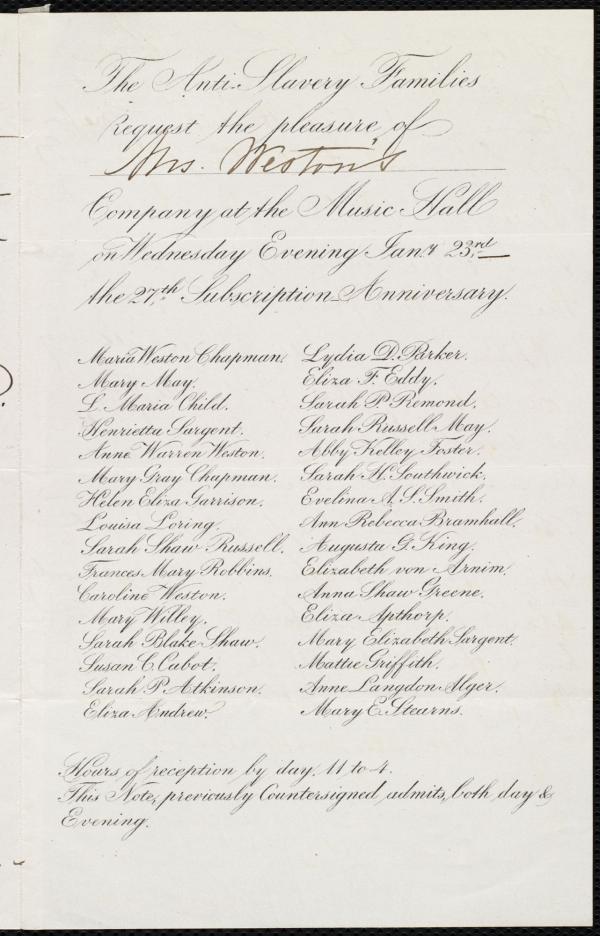 The Anti-Slavery Families
Request the pleasure of
Mrs. Weston's
Company at the Music Hall
on Wednesday Evening Jan.y 23rd
the 27.th Subscription Anniversary.
Maria Weston Chapman.
Mary May.
L. Maria Child.
Henrietta Sargent.
Anne Warren Weston.
Mary Gray Chapman.
Helen Eliza Garrison.
Louisa Loring.
Sarah Shaw Russell.
Frances Mary Robbins.
Caroline Weston.
Mary Willey.
Sarah Blake Shaw.
Susan C. Cabot.
Sarah P. Atkinson.
Eliza Andrew.
Lydia D. Parker.
Eliza F. Eddy.
Sarah P. Remond.
Sarah Russell May.
Abby Kelley Foster.
Sarah H. Southwick.
Evelina A. S. Smith.
Ann Rebecca Bramhall.
Augusta G. King.
Elizabeth von Arnim.
Anna Shaw Greene.
Eliza Apthorp.
Mary Elizabeth Sargent.
Mattie Griffith.
Anne Langdon Alger.
Mary E. Stearns.
Hours of reception by day, 11 to 4.
This Note, previously Countersigned, admits, both day &
Evening.